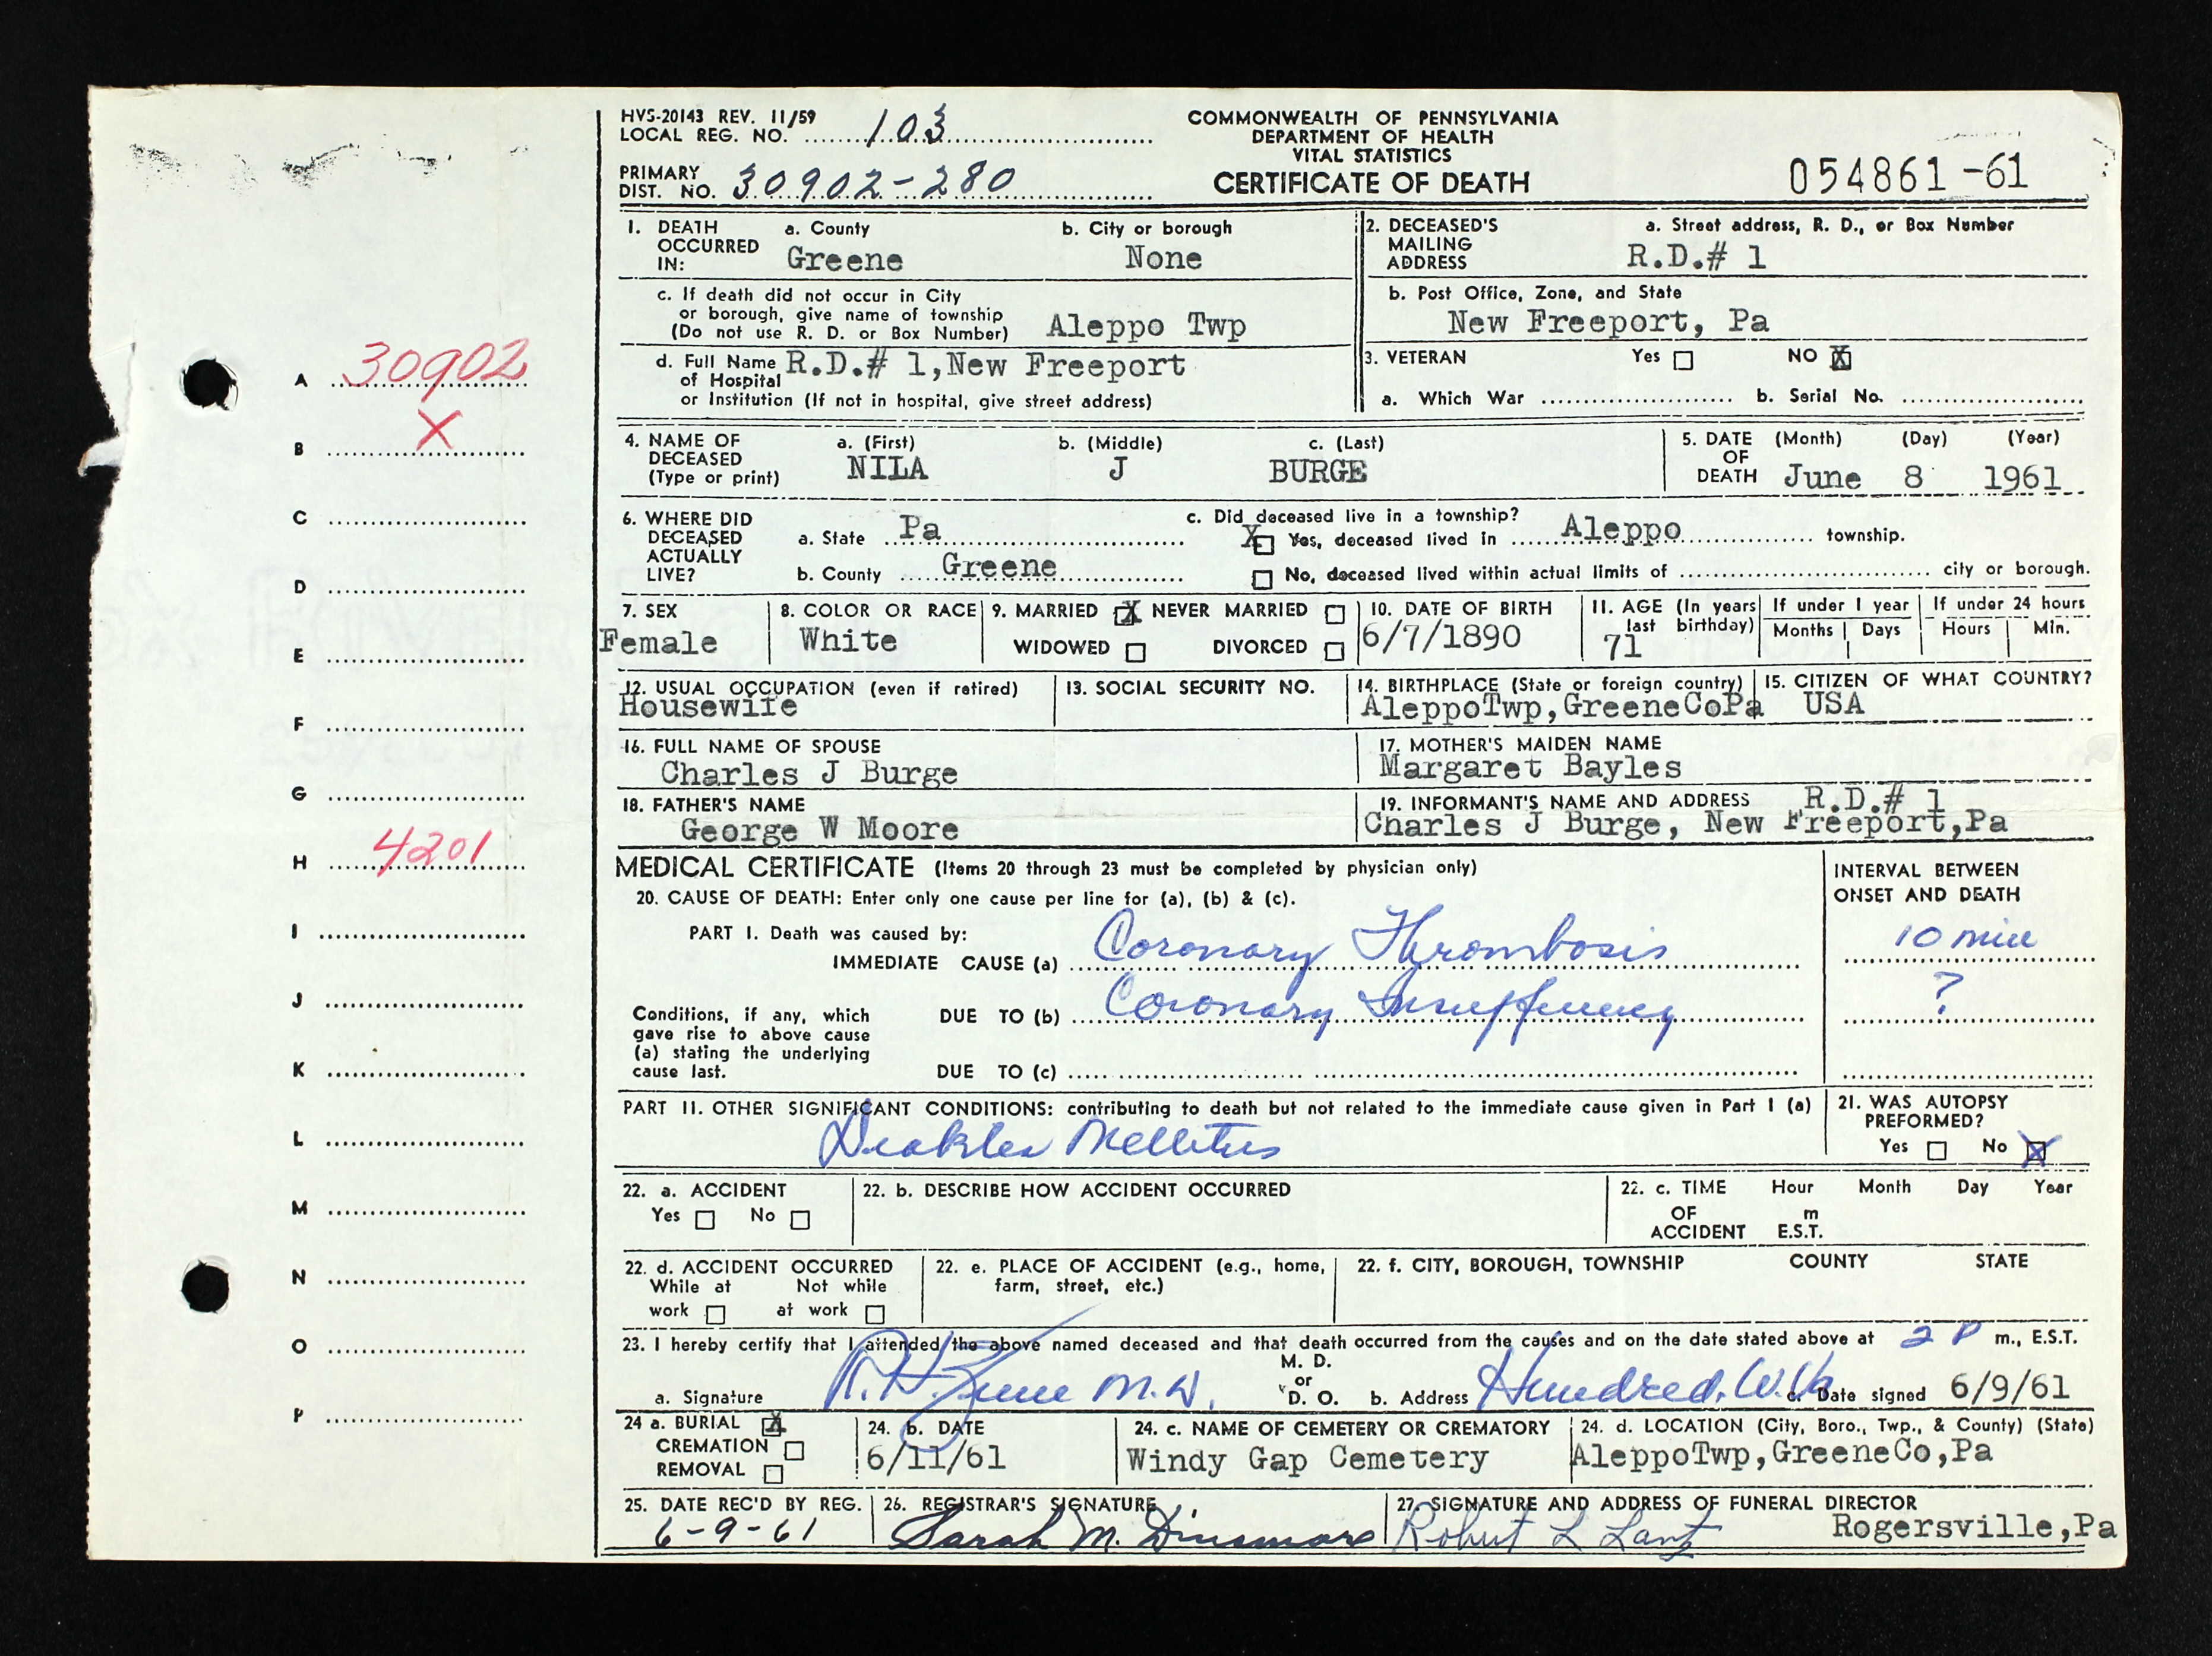 HVS-20143 REV. 11/59
LOCAL REG. NO. 103
PRIMARY DIST. NO. 30902-280
COMMONWEALTH OF PENNSYLVANIA
DEPARTMENT OF HEALTH
VITAL STATISTICS
CERTIFICATE OF DEATH
054861-61
1. DEATH OCCURRED IN: a. County Greene b. City or borough None
c. If death did not occur in City
or borough, give name of township
(Do not use R. D. or Box Number) Aleppo Twp
d. Full Name of Hospital R.D.# 1,New Freeport
or Institution (If not in hospital, give street address)
2. DECEASED'S MAILING ADDRESS a. Street address, R. D., or Box Number R.D.# 1
b. Post Office, Zone, and State
New Freeport, Pa
3. VETERAN Yes NO X
a. Which War b. Serial No.
4. NAME OF DECEASED (Type or print) a. (First) NILA b. (Middle) J c. (Last) BURGE
5. DATE OF DEATH (Month) (Day) (Year) June 8 1961
6. WHERE DID DECEASED ACTUALLY LIVE? a. State Pa
b. County Greene
c. Did deceased live in a township?
X Yes, deceased lived in Aleppo township.
No, deceased lived within actual limits of city or borough.
7. SEX Female
8. COLOR OR RACE White
9. MARRIED X NEVER MARRIED
WIDOWED DIVORCED
10. DATE OF BIRTH 6/7/1890
11. AGE (In years last birthday) 71
If under 1 year Months Days
If under 24 hours Hours Min.
12. USUAL OCCUPATION (even if retired) Housewife
13. SOCIAL SECURITY NO.
14. BIRTHPLACE (State or foreign country) AleppoTwp,GreeneCoPa
15. CITIZEN OF WHAT COUNTRY? USA
16. FULL NAME OF SPOUSE Charles J Burge
17. MOTHER'S MAIDEN NAME Margaret Bayles
18. FATHER'S NAME George W Moore
19. INFORMANT'S NAME AND ADDRESS R.D.# 1
Charles J Burge, New Freeport,Pa
MEDICAL CERTIFICATE (Items 20 through 23 must be completed by physician only)
INTERVAL BETWEEN ONSET AND DEATH
20. CAUSE OF DEATH: Enter only one cause per line for (a), (b) & (c).
PART I. Death was caused by:
IMMEDIATE CAUSE (a) Coronary Thrombosis 10 min
Conditions, if any, which
gave rise to above cause
(a) stating the underlying
cause last.
DUE TO (b) Coronary Insufficiency ?
DUE TO (c)
PART II. OTHER SIGNIFICANT CONDITIONS: contributing to death but not related to the immediate cause given in Part I (a)
Diabetes Mellitus
21. WAS AUTOPSY PREFORMED?
Yes No X
22. a. ACCIDENT
Yes No
22. b. DESCRIBE HOW ACCIDENT OCCURRED
22. c. TIME OF ACCIDENT Hour Month Day Year
m
E.S.T.
22. d. ACCIDENT OCCURRED
While at work Not while at work
22. e. PLACE OF ACCIDENT (e.g., home, farm, street, etc.)
22. f. CITY, BOROUGH, TOWNSHIP COUNTY STATE
23. I hereby certify that I attended the above named deceased and that death occurred from the causes and on the date stated above at 2 P m., E.S.T.
a. Signature M.D. M. D. or D. O. b. Address Hundred, W.Va c. Date signed 6/9/61
24 a. BURIAL X
CREMATION
REMOVAL
24. b. DATE 6/11/61
24. c. NAME OF CEMETERY OR CREMATORY Windy Gap Cemetery
24. d. LOCATION (City, Boro., Twp., & County) (State) AleppoTwp,GreeneCo,Pa
25. DATE REC'D BY REG. 6-9-61
26. REGISTRAR'S SIGNATURE Sarah M. Dinsmore
27. SIGNATURE AND ADDRESS OF FUNERAL DIRECTOR Robert L Lantz Rogersville,Pa
A 30902
B X
C
D
E
F
G
H 4201
I
J
K
L
M
N
O
P